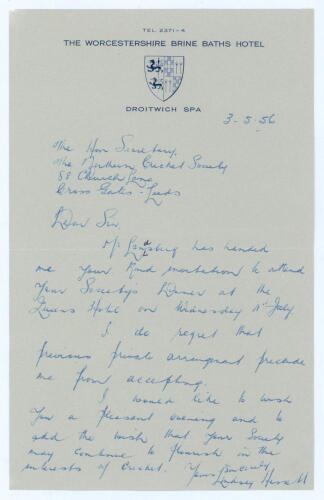 TEL. 2371-4
THE WORCESTERSHIRE BRINE BATHS HOTEL
DROITWICH SPA
3-5-56
The Hon Secretary.
The Northern Cricket Society
88 Church Lane
Cross Gates - Leeds
Dear Sir,
Mr has handed
me your kind invitation to attend
your Society's Dinner at the
Queens Hotel on Wednesday July
I do regret that
previous private arrangement preclude
me from accepting.
I would like to wish
you a pleasant evening and to
add the wish that your Society
may continue to flourish in the
interests of cricket. Yours Sincerely
Lindsay Hassett